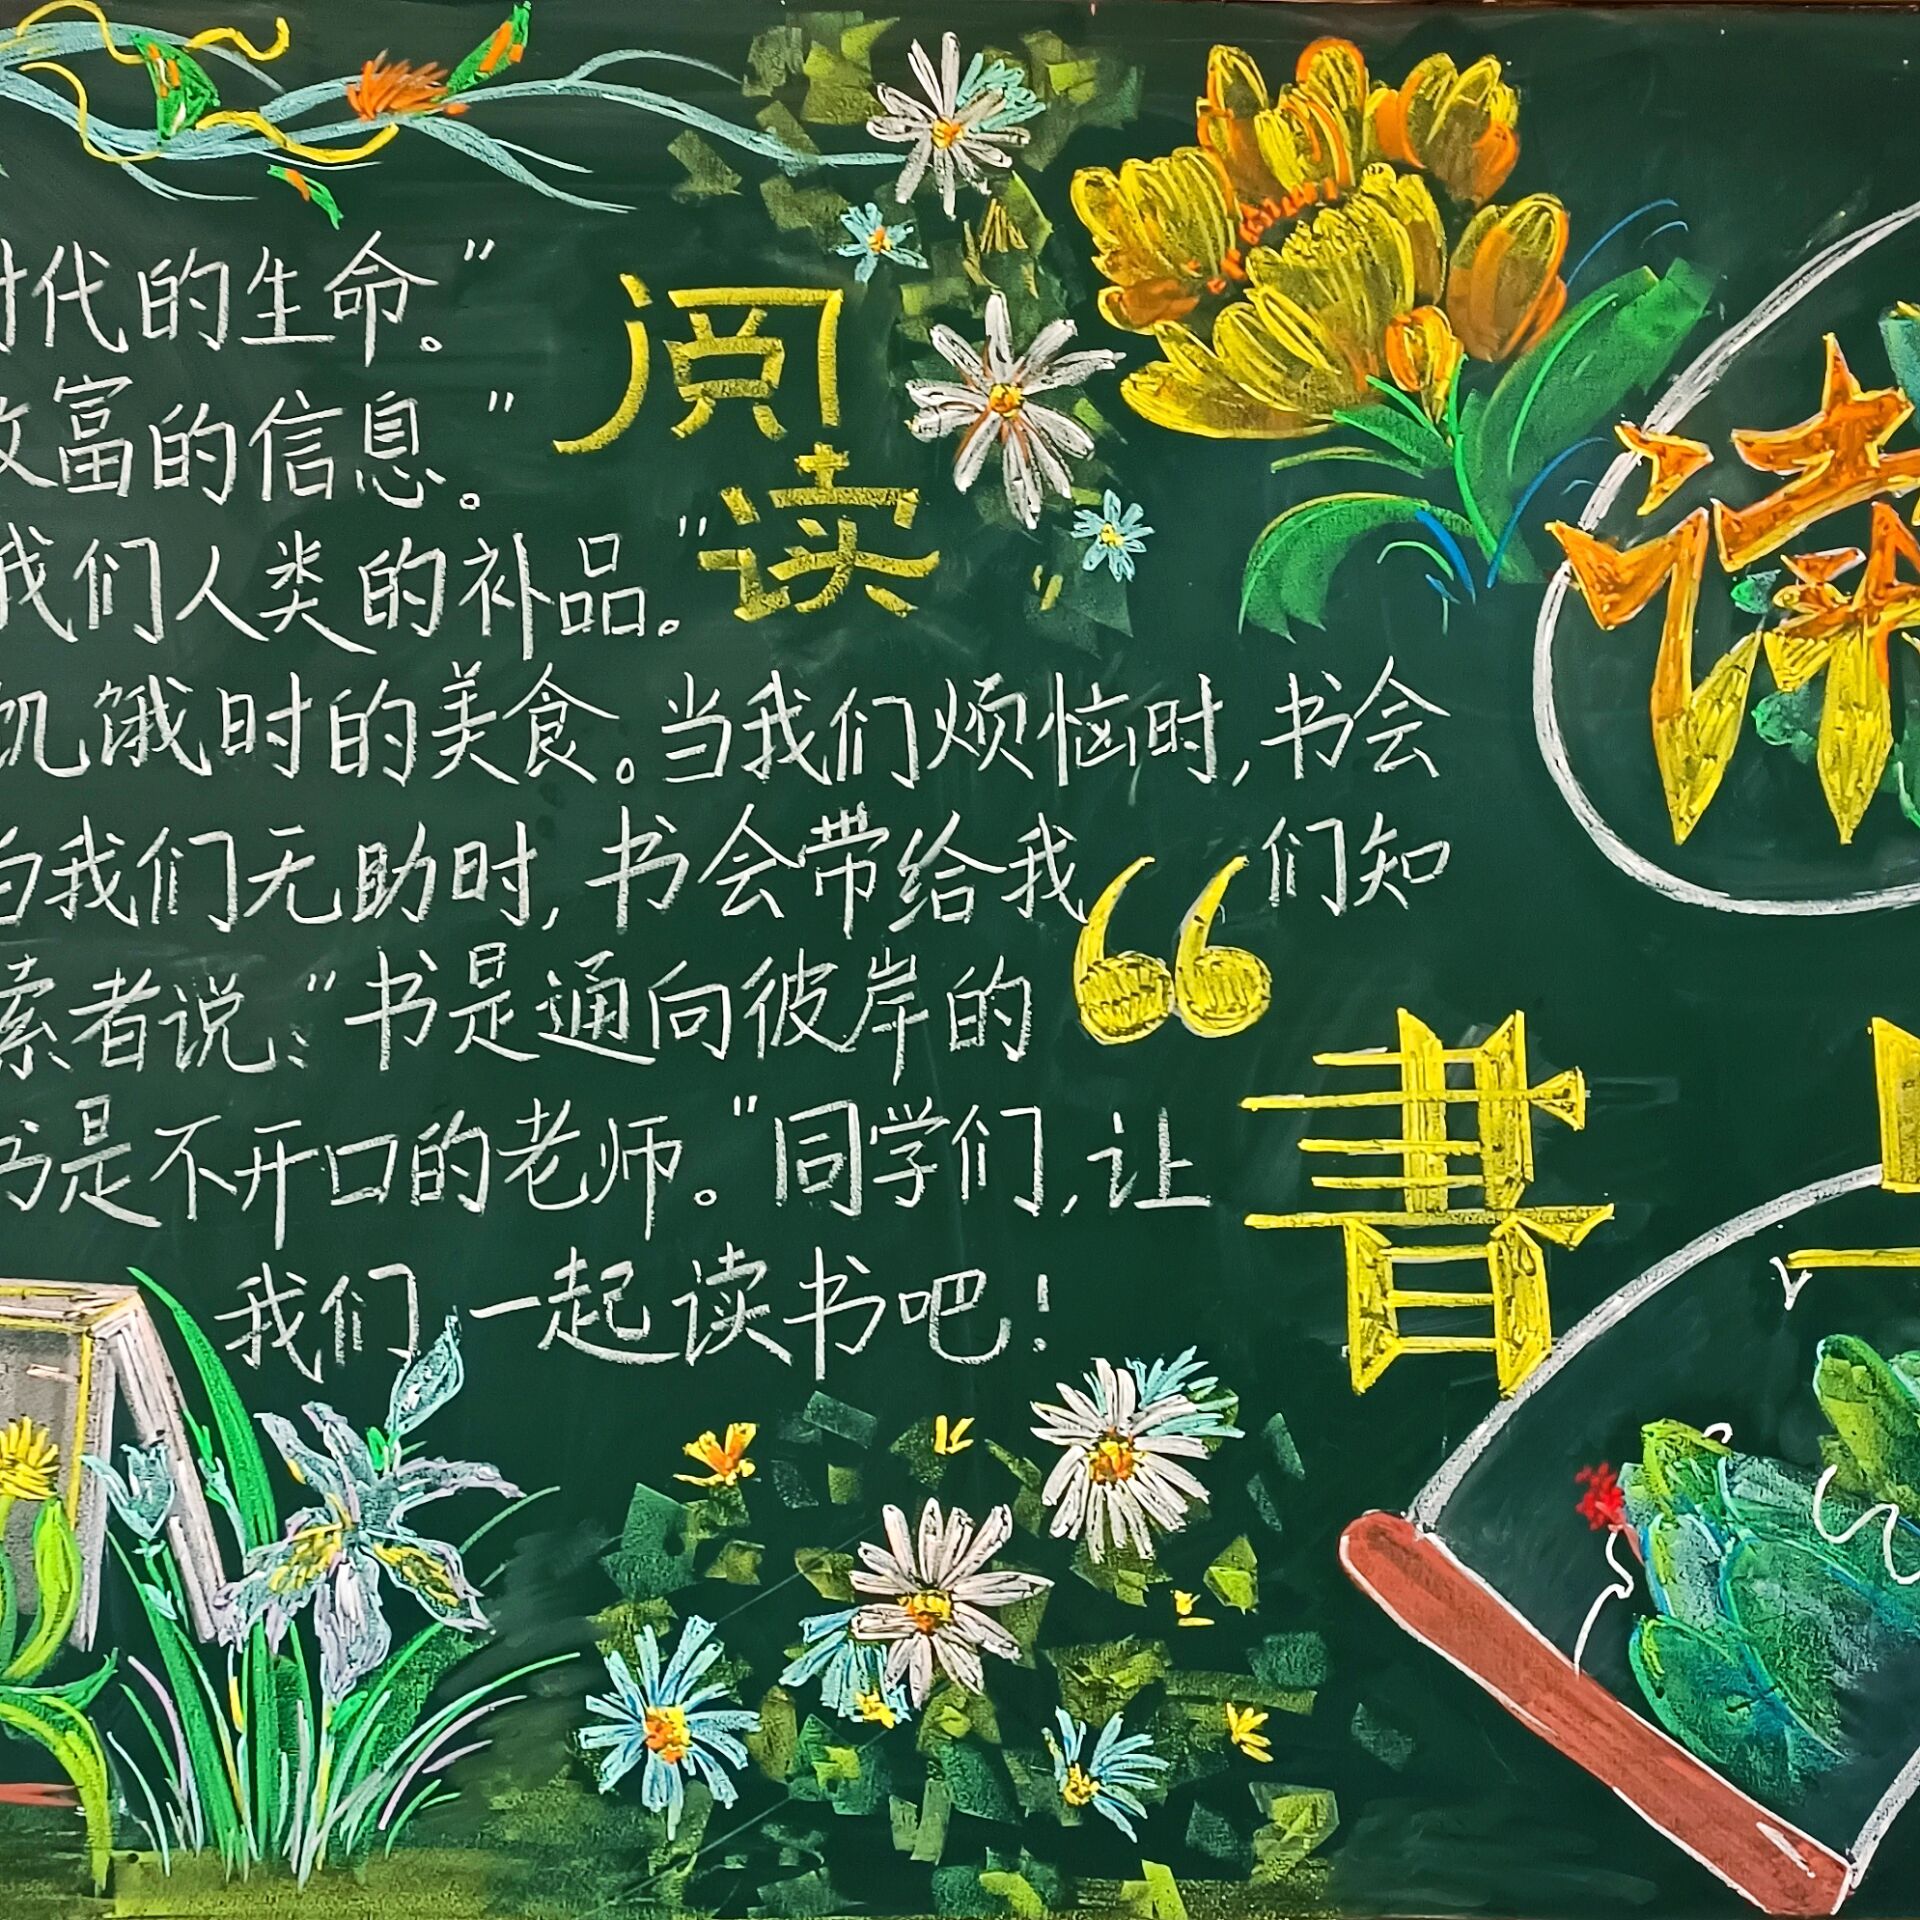 时代的生命。"
富的信息。"
我们人类的补品。"
饥饿时的美食。当我们烦恼时,书会
当我们无助时,书会带给我们知
索者说:"书是通向彼岸的
书是不开口的老师。"同学们,让
我们一起读书吧!
阅
读
“
書
读